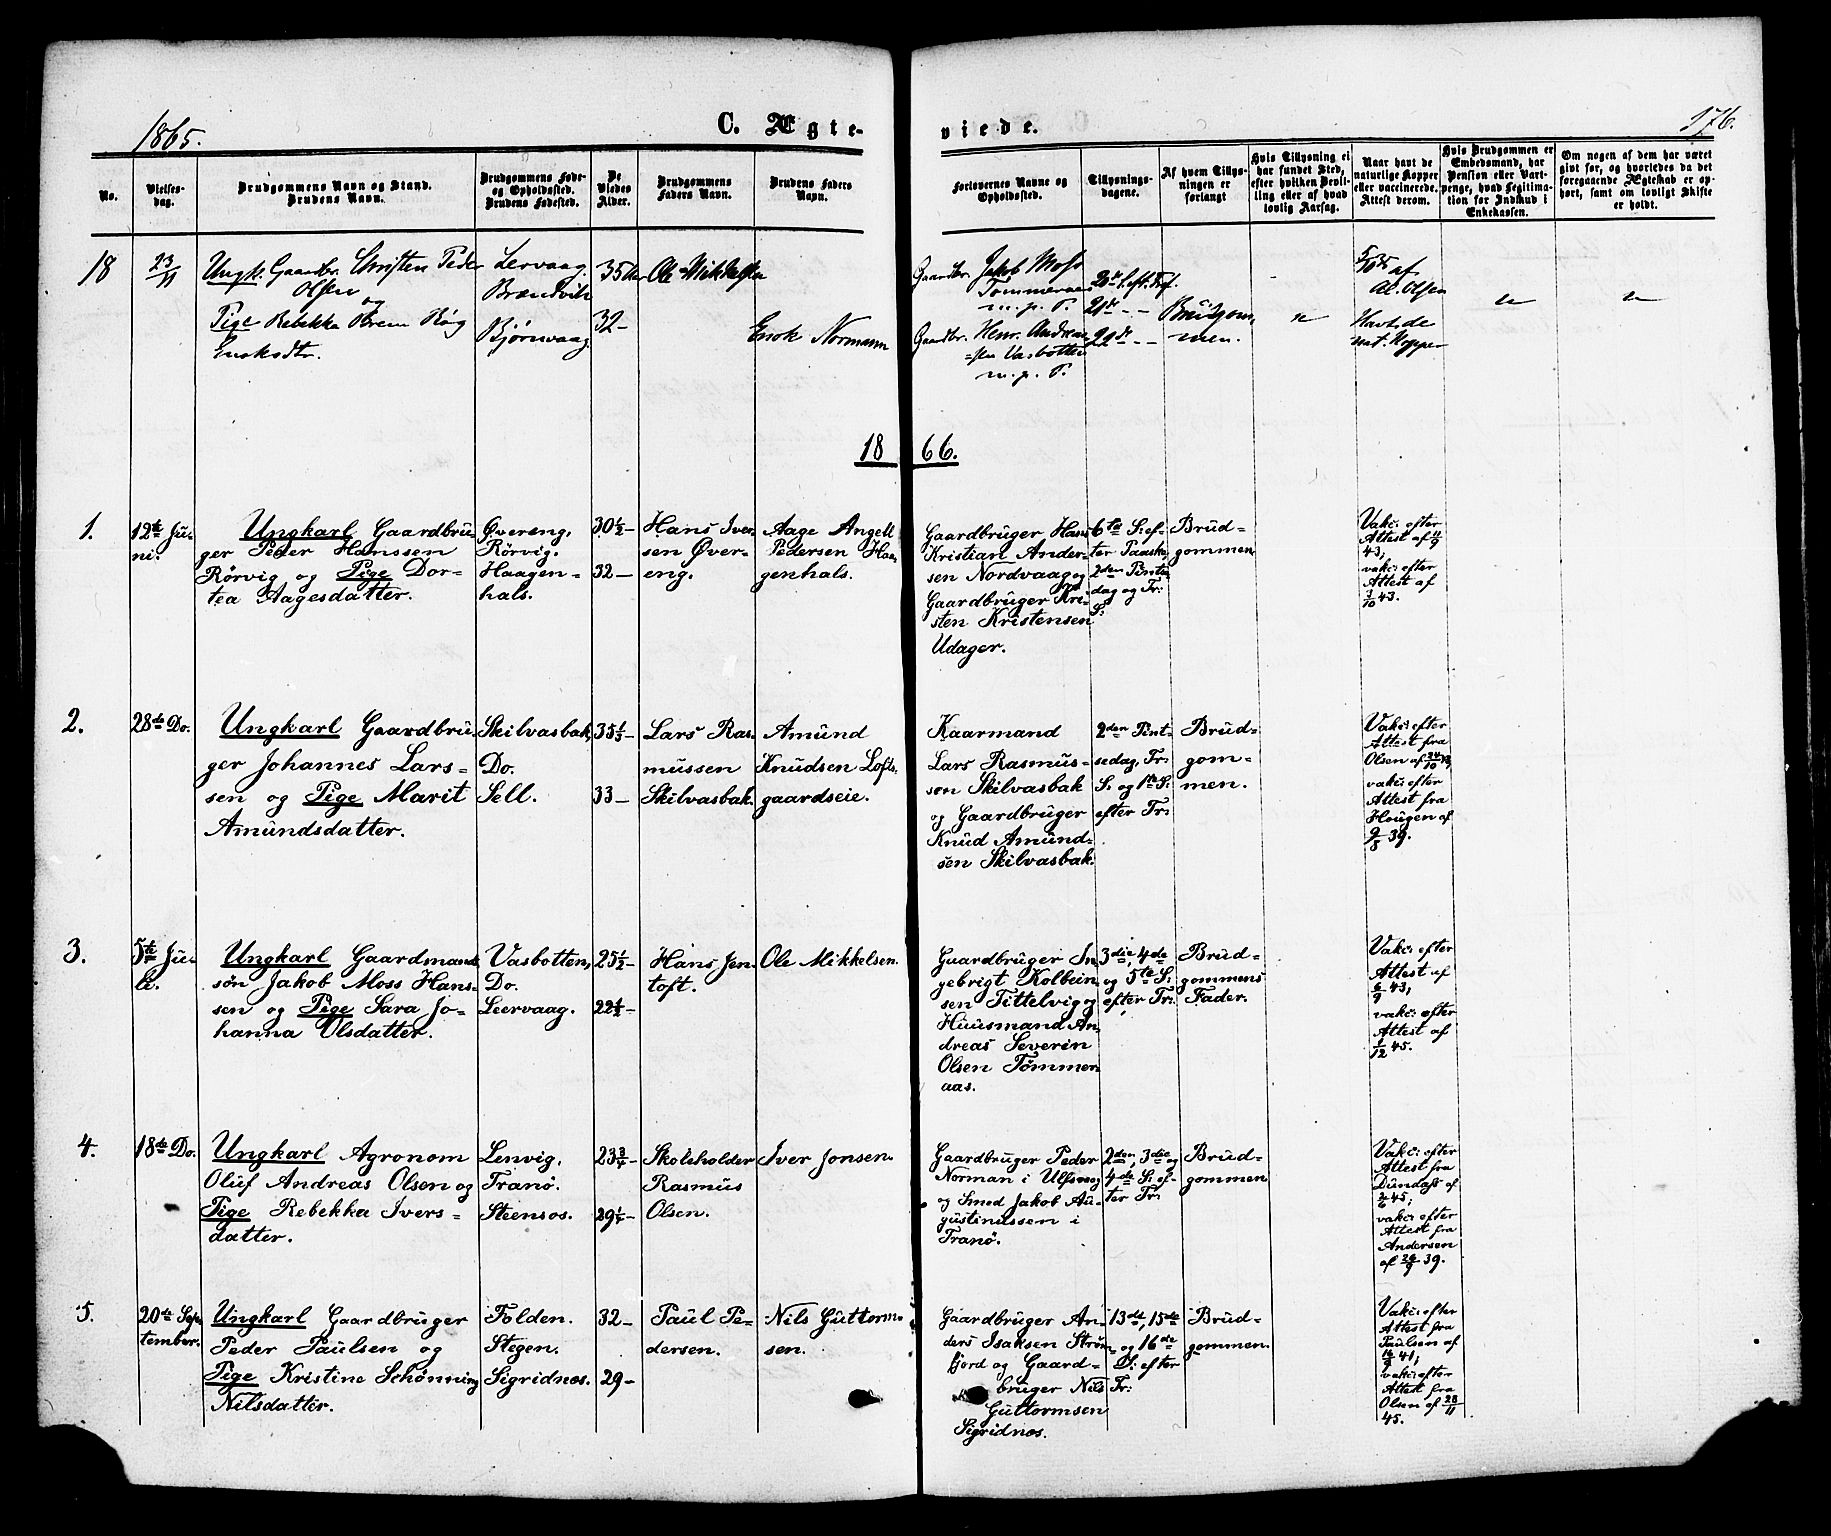 1865.
C. Ægte-
viede.
176.
No.
Vielses-
dag.
Brudgommens Navn og Stand.
Brudens Navn.
Brudgommens Føde-
og Opholdssted.
Brudens Fødested.
De
Viedes
Alder.
Brudgommens
Faders Navn.
Brudens Faders
Navn.
Forlovernes Navne og
Opholdssted.
Tillysnings-
dagene.
Af hvem Tillys-
ningen er
forlangt
Hvis Tillysning ei
har fundet Sted,
efter hvilken Bevil-
ling eller af hvad
lovlig Aarsag.
Naar havt de
naturlige Kopper
eller vaccinerede.
Attest derom.
Hvis Brudgommen er
Embedsmand, har
Pension eller Vart-
penge, hvad Legitima-
tion for Indskud i
Enkekassen.
Om nogen af dem har været
givt før, og hvorledes da det
foregaaende Ægteskab er op-
hørt, samt om lovligt Skifte
er holdt.
18
23/11
Ungk. Gaardbr. Christen Peder
Olsen
og
Pige Rebekka Røg
Enoksdtr.
Lervaag
Brændvik
Bjørnvaag
35
32-
Ole Mikkelsen
Enok Normann
Gaardbr. Jakob Moss
Tømmeraas
m. p. P.
Gaardbr. Henr. Andreas-
sen Vasbotten
m. p. P.
20de S. eft. Tref.
21de - -
22de - -
Brudgom-
men.
af
Ol. Olsen
Havt de
nat. Kopper
1866.
1.
12te Ju-
ni.
Ungkarl Gaardbru-
ger Peder Hanssen
Rörvig og Pige Dor-
tea Aagesdatter.
Øvereng,
Rörvig.
Haagen-
hals.
30½-
32-
Hans Iver-
sen Øver-
eng.
Aage Angell
Pedersen Haa-
genhals.
Gaardbruger Hans
Kristian Ander-
sen Nordvaag og
Gaardbruger Kri-
sten Kristensen
Udager.
6te S: ef-
ter Paaske,
2den Pints-
dag og Tr:
S:
Brud-
gommen
Vak: efter
Attest af 11/9
43,
vak: efter
Attest af
3/10 43.
2.
28de Do.
Ungkarl Gaardbru-
ger Johannes Lars-
sen og Pige Marit
Amundsdatter.
Skilvasbak,
Do.
Sell.
35⅓-
33-
Lars Ras-
mussen
Skilvasbak.
Amund
Knudsen Lofts-
gaardseie.
Kaarmand
Lars Rasmus-
sen Skilvasbak
og Gaardbruger
Knud Amund-
sen Skilvasbak.
2den Pint-
sedag, Tr:
S: og 1ste S:
efter Tr:
Brud-
gom-
men.
Vak: efter
Attest fra
Olsen af
vak: efter
Attest fra
Hougen af
9/8 39.
3.
5te Ju-
li.
Ungkarl Gaardmands-
søn Jakob Moss Hans-
sen og Pige Sara Jo-
hanna Olsdatter.
Vasbotten,
Do.
Leervaag.
25½-
22½-
Hans Jen-
toft.
Ole Mikkelsen.
Gaardbruger In-
gebrigt Kolbein-
sen Tittelvig og
Huusmand An-
dreas Severin
Olsen Tömmer-
aas.
3die, 4de
og 5te S:
efter Tr:
Brud-
gommens
Fader.
Vak: efter
Attest af
6/9 43,
vak: efter
Attest af
1/12 45.
4.
18de Do.
Ungkarl Agronom
Oluf Andreas Olsen og
Pige Rebekka Ivers-
datter.
Lenvig,
Tranö.
Steensos.
23¾-
29¼-
Skoleholder
Rasmus
Olsen.
Iver Jonsen.
Gaardbruger Peder
Norman i Ulfsvog
og Smed Jakob Au-
gustinussen i
Tranö.
2den, 3die og
4de S: ef-
ter Tr:
Brud-
gommen
Vak: efter
Attest fra
Dundast af
2/6 45,
vak: efter
Attest fra
Andersen
af 26/9 39.
5.
20de Sep-
tember.
Ungkarl Gaardbruger
Peder Paulsen og
Pige Kristine Schönning
Nilsdatter.
Folden.
Stegen.
Sigridnos.
32-
29-
Paul Pe-
dersen.
Nils Guttorm-
sen.
Gaardbruger An-
ders Isaksen Ström-
fjord og Gaard-
bruger Nils
Guttormsen
Sigridnos.
13de, 15de
og 16de
S: efter
Tr:
Brud-
gommen.
Vak: efter
Attest fra
Paulsen af
16/9 41,
vak: efter
Attest fra
Olsen af 28/11
45.